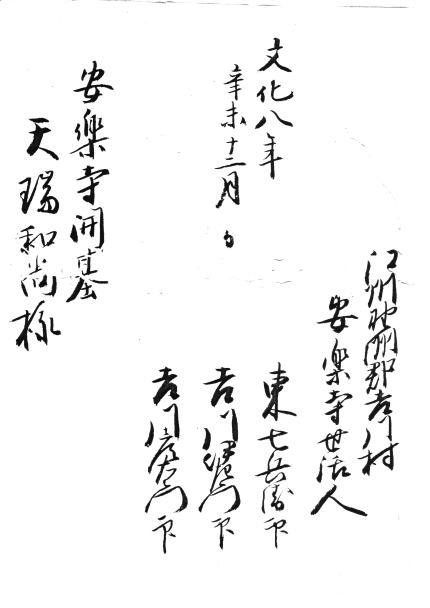 文化八年
辛未十二月 日
江州野洲郡吉川村
安楽寺世話人
東七兵衛 印
吉川伊左衛門 印
吉川彦左衛門 印
安楽寺開基
天瑞和尚様